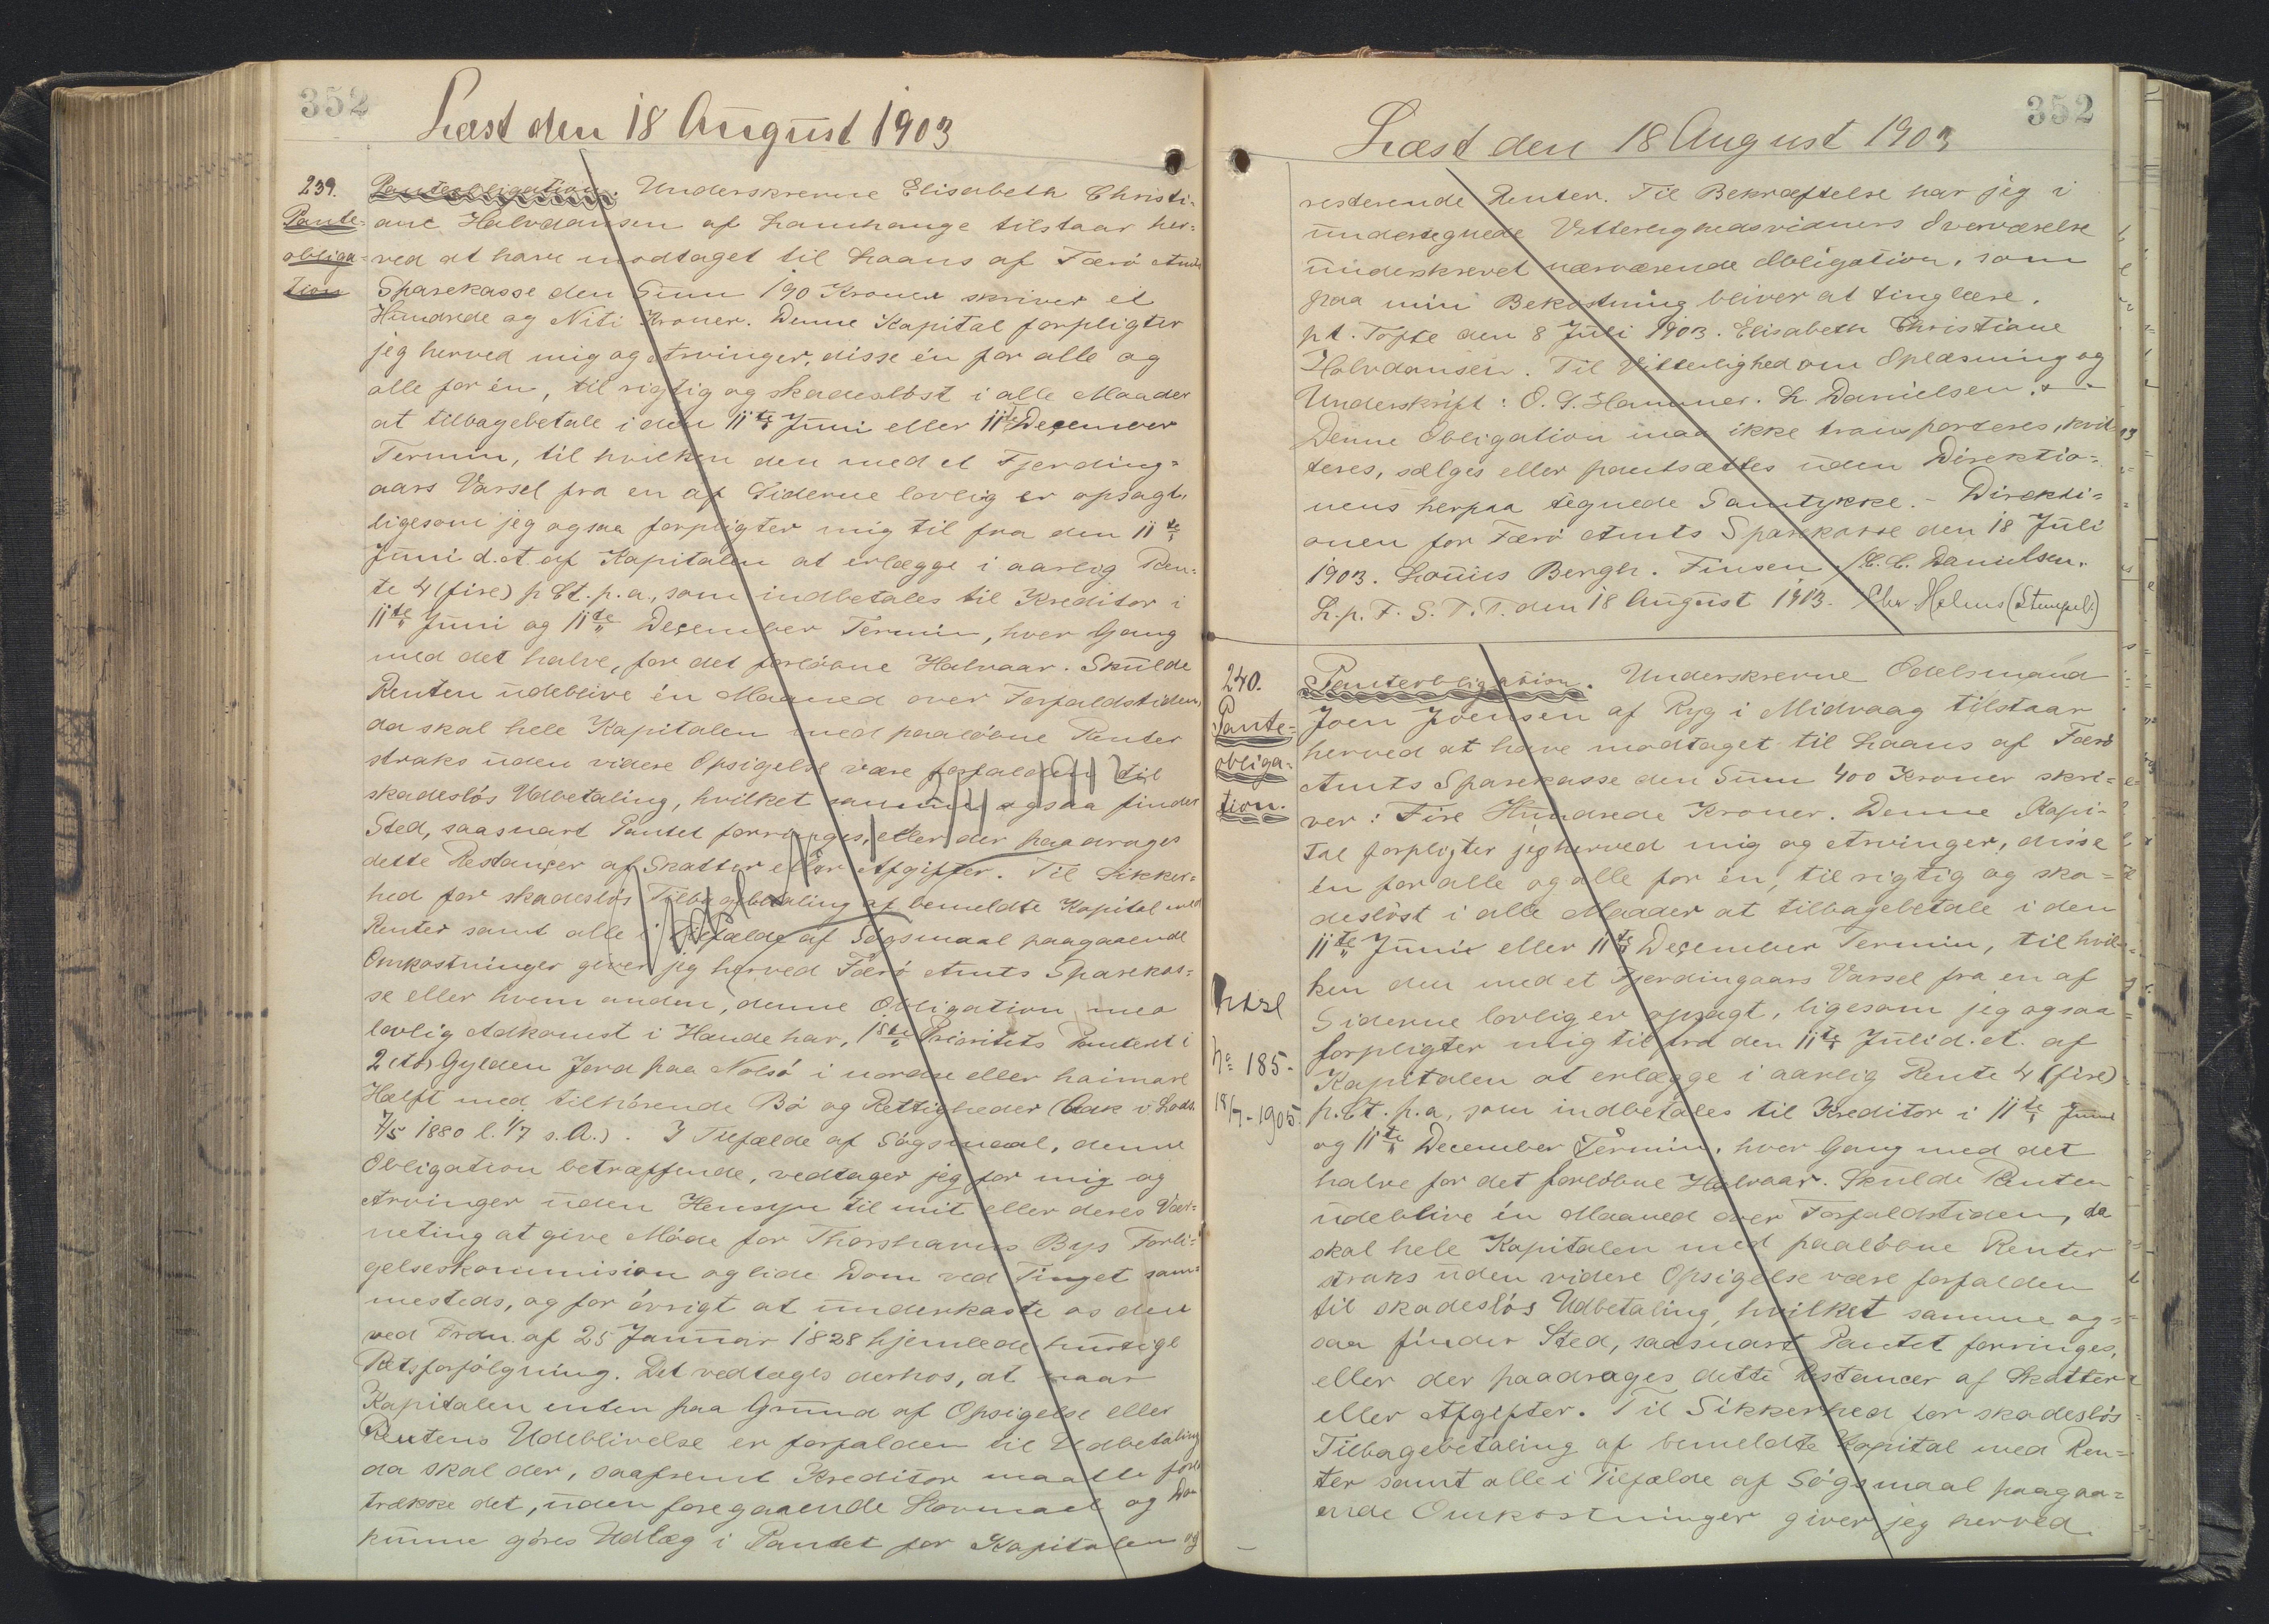 352
Læst den 18 August 1903
239.
Pante-
obliga-
tion
Panteobligation. Underskrevne Elisabeth Christi-
ane Halvdansen af Lamhauge tilstaar her-
ved at have modtaget til Laans af Færö Amts
Sparekasse den Sum 190 Kroner skriver et
Hundrede og Niti Kroner. Denne Kapital forpligter
jeg herved mig og Arvinger, disse én for alle og
alle for én, til rigtig og skadeslöst i alle Maader
at tilbagebetale i den 11te Juni eller 11te December
Termin, til hvilken den med et Fjerding-
aars Varsel fra en af Siderne lovlig er opsagt,
ligesom jeg ogsaa forpligter mig til fra den 11te
Juni d.A. af Kapitalen at erlægge i aarlig Ren-
te 4 (fire) p Ct. p.a., som indbetales til Kreditor i
11te Juni og 11te December Termin, hver Gang
med det halve, for det forlöbne Halvaar. Skulde
Renten udeblive én Maaned over Forfaldstiden,
da skal hele Kapitalen med paalöbne Renter
straks uden videre Opsigelse være forfalden til
skadeslös Udbetaling, hvilket samme ogsaa finder
Sted, saasnart Pantet forringes, eller der paadrages
dette Restancer af Skatter eller Afgifter. Til Sikker-
hed for skadeslös Tilbagebetaling af bemeldte Kapital med
Renter samt alle i Tilfælde af Sögsmaal paagaaende
Omkostninger giver jeg herved Færö Amts Sparekas-
se eller hvem anden, denne Obligation med
lovlig Adkomst i Hænde har, 1ste Prioritets Panteret i
2 (to) Gylden Jord paa Nolsö i nordre eller haimare
Hælft med tilhörende Bö og Rettigheder (Adk v. Lods.
7/5 1880 l. 1/7 s.A.). I Tilfælde af Sögsmaal, denne
Obligation betræffende, vedtager jeg for mig og
Arvinger uden Hensyn til mit eller deres Vær-
neting at give Möde for Thorshavns Bys Forli-
gelseskommision og lide Dom ved Tinget sam-
mesteds, og for övrigt at underkaste os den
ved Frdn. af 25 Januar 1828 hjemlede hurtige
Retsforfölgning. Det vedtages derhos, at naar
Kapitalen enten paa Grund af Opsigelse eller
Rentens Udeblivelse er forfalden til Udbetaling
da skal der, saafremt Kreditor maatte fore
trække det, uden foregaaende Lovmaal og Dom
kunne göres Udlæg i Pantet for Kapitalen og
352
Læst den 18 August 1903
resterende Renter. Til Bekræftelse har jeg i
undertegnede Vitterlighedsvidners Overværelse
underskrevet nærværende Obligation, som
paa min Bekostning bliver at tinglæse.
pt. Tofte den 8 Juli 1903. Elisabeth Christiane
Halvdansen. Til Vitterlighed om Oplæsning og
Underskrift: O. S. Hammer. L. Danielsen.
Denne Obligation maa ikke transporteres, kvit
teres, sælges eller pantsættes uden Direktio-
nens herpaa tegnede Samtykke. - Direkti-
onen for Færö Amts Sparekasse den 18 Juli
1903. Louis Bergh. Finsen. C. C. Danielsen.
L. p. F. S. T. T. den 18 August 1903. Chr Helms (Stempel.)
240.
Pante-
obliga-
tion.
hisl
No 185.
18/7-1905.
Panteobligation. Underskrevne Odelsmand
Joen Joensen af Ryg i Midvaag tilstaar
herved at have modtaget til Laans af Færö
Amts Sparekasse den Sum 400 Kroner skri-
ver: Fire Hundrede Kroner. Denne Kapi-
tal forpligter jeg herved mig og Arvinger, disse
én for alle og alle for én, til rigtig og ska-
deslöst i alle Maader at tilbagebetale i den
11te Juni eller 11te December Termin, til hvil-
ken den med et Fjerdingaars Varsel fra en af
Siderne lovlig er opsagt, ligesom jeg ogsaa
forpligter mig til fra den 11te Juli d.A. af
Kapitalen at erlægge i aarlig Rente 4 (fire)
p. Ct. p.a, som indbetales til Kreditor i 11te Juni
og 11te December Termin, hver Gang med det
halve for det forlöbne Halvaar. Skulde Renten
udeblive én Maaned over Forfaldstiden, da
skal hele Kapitalen med paalöbne Renter
straks uden videre Opsigelse være forfalden
til skadeslös Udbetaling, hvilket samme og-
saa finder Sted, saasnart Pantet forringes,
eller der paadrages dette Restancer af Skatter
eller Afgifter. Til Sikkerhed for skadeslös
Tilbagebetaling af bemeldte Kapital med Ren-
ter samt alle i Tilfælde af Sögsmaal paagaa-
ende Omkostninger giver jeg herved